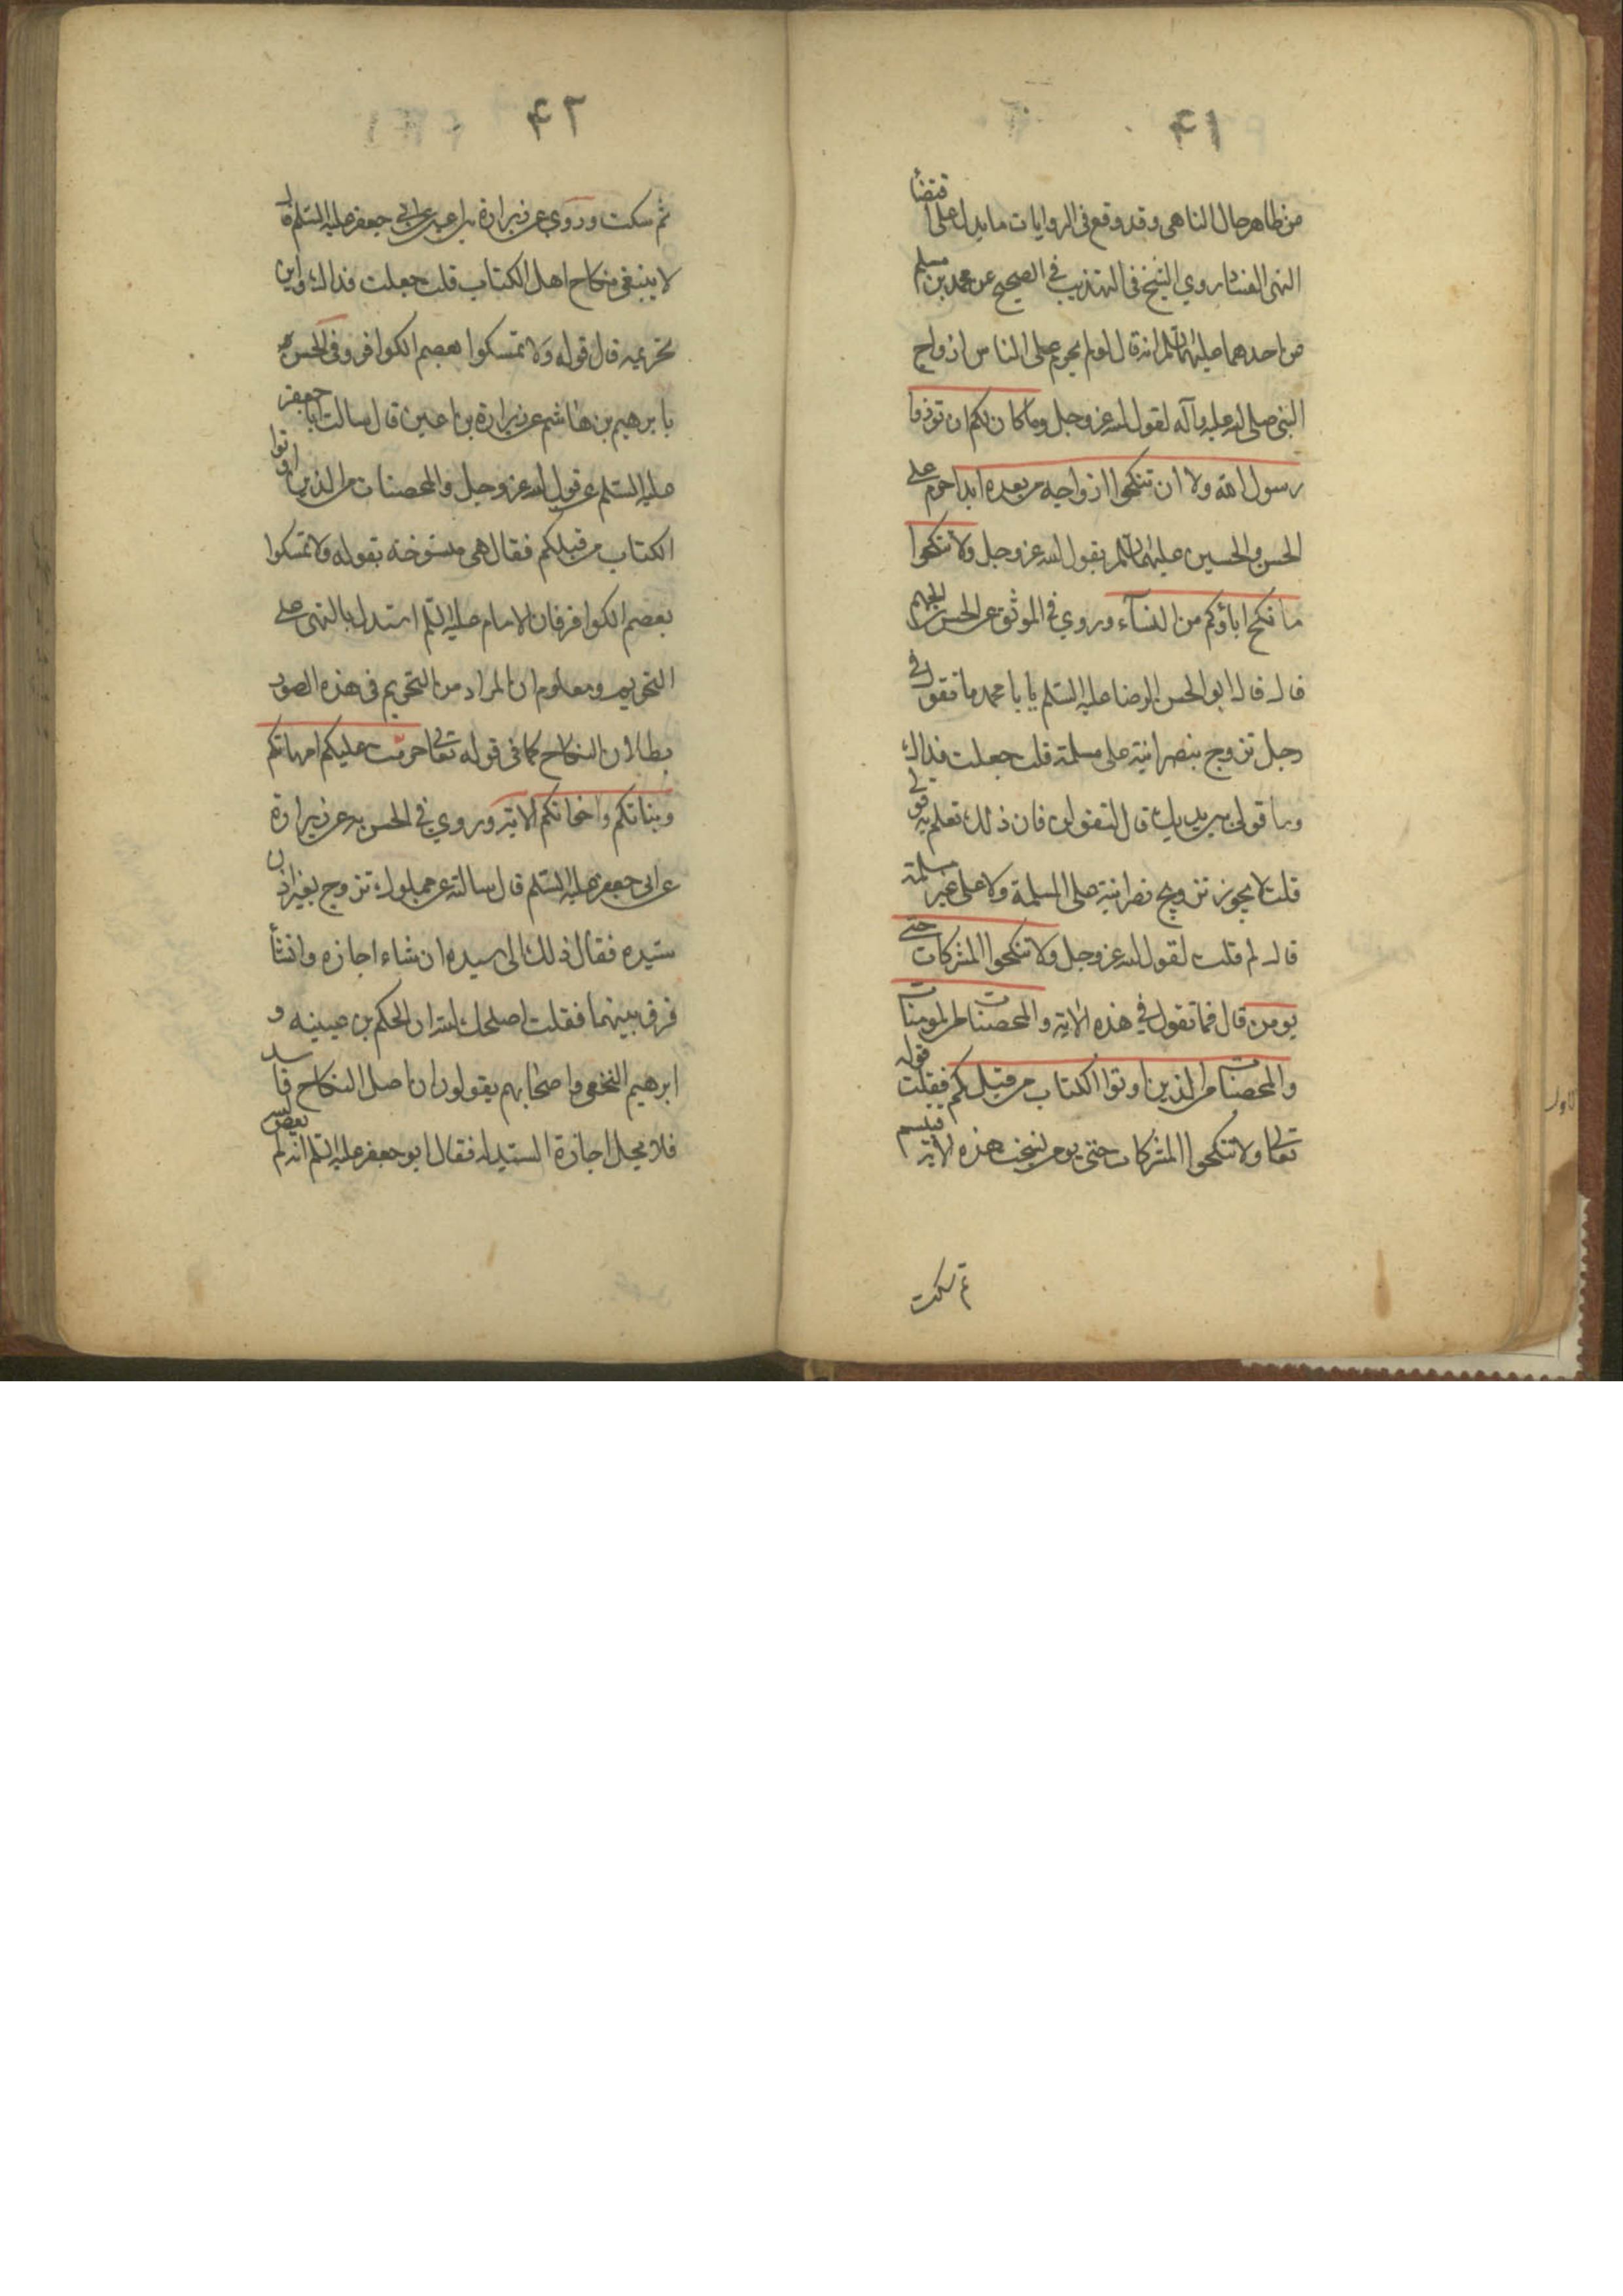 ۴۱
من ظاهر حال الناهى وقد وقع فى الروايات ما يدل على اقتضأ
النهى الفساد روي الشيخ فى التهذيب في الصحيح عن محمد بن مسلم
عن احدهما عليهما السلم انه قال لو لم يحرم على الناس ازواج
النبى صلى الله عليه وآله لقول الله عز وجل وما كان لكم ان توذوا
رسول الله ولا ان تنكحوا ازواجه من بعده ابدا حرم على
الحسن والحسين عليهما السلم بقول الله عز وجل ولا تنكحوا
ما نكح اباؤكم من النسآء وروي في الموثق عن الحسن بن الجهم
قال قال ابو الحسن الرضا عليه السلم يا با محمد ما تقول في
رجل تزوج بنصرانية على مسلمة قلت جعلت فداك
وما قولى بين يديك قال لتقولن فان ذلك تعلم به قولى
قلت لا يجوز تزويج نصرانية على المسلمة ولا على غير مسلمة
قال لم قلت لقول الله عز وجل ولا تنكحوا المشركات حتى
يومن قال فما تقول في هذه الاية والمحصنات من المومنات
والمحصنات من الذين اوتوا الكتاب من قبلكم فقلت قوله
تعالى ولا تنكحوا المشركات حتى يومن نسخت هذه الاية فتبسم
ثم سكت
۴۲
ثم سكت وروي عن زرارة بن اعين عن ابي جعفر عليه السلم قال
لا ينبغى نكاح اهل الكتاب قلت جعلت فداك واين
تحريمه قال قوله ولا تمسكوا بعصم الكوافر وفى الحسن
با برهيم بن هاشم عن زرارة بن اعين قال سالت ابا جعفر
عليه السلم عن قول الله عز وجل والمحصنات من الذين اوتوا
الكتاب من قبلكم فقال هى منسوخة بقوله ولا تمسكوا
بعصم الكوافر فان الامام عليه السلم استدل بالنهى على
التحريم ومعلوم ان المراد من التحريم فى هذه الصور
بطلان النكاح كما فى قوله تعالى حرمت عليكم امهاتكم
وبناتكم واخواتكم الاية وروي في الحسن به عن زرارة
عن ابى جعفر عليه السلم قال سالته عن مملوك تزوج بغير اذن
سيده فقال ذلك الى سيده ان شاء اجازه وان شأ
فرق بينهما فقلت اصلحك الله ان الحكم بن عيينه و
ابرهيم النخعى واصحابهم يقولون ان اصل النكاح فاسد
فلا يحل اجازة السيد له فقال ابو جعفر عليه السلم انه لم يعص